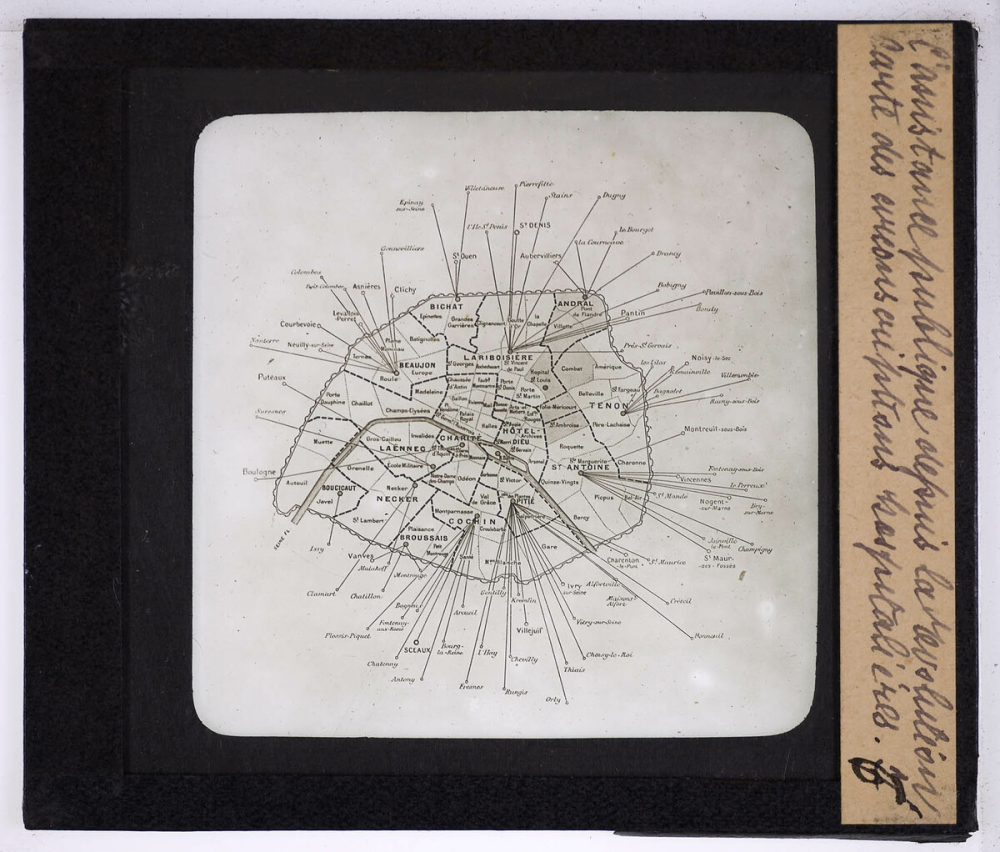 l'assistance publique depuis la révolution
carte des circonscriptions hospitalières.
Villetaneuse
Pierrefitte
Stains
Dugny
Epinay
sur-Seine
l'Ile-St Denis
St DENIS
le Bourget
la Courneuve
Gennevilliers
St Ouen
Aubervilliers
Drancy
Colombes
Bois-Colombes
Asnières
Clichy
Bobigny
Pavillon-sous-Bois
Bondy
BICHAT
ANDRAL
Pont
de Flandre
Levallois
-Perret
Epinettes
Grandes
Carrières
Clignancourt
Goutte
d'Or
la
Chapelle
Villette
Pantin
Courbevoie
Plaine
Monceau
Batignolles
Nanterre
Neuilly-sur-Seine
Ternes
LARIBOISIÈRE
Prés-St Gervais
les Lilas
Noisy-le-Sec
Romainville
BEAUJON
Europe
St Georges
Rochechouart
St Vincent
de Paul
Hôpital
St Louis
Combat
Amérique
Villemomble
Puteaux
Roule
Belleville
St Fargeau
Bagnolet
Rosny-sous-Bois
Porte
Dauphine
Chaillot
Madeleine
Chaussée
d'Antin
Faubg
Montmartre
Porte
St Denis
Porte
St Martin
TENON
Suresnes
Champs-Elysées
Gaillon
Palais
Royal
Halles
Folie-Méricourt
St Ambroise
Père-Lachaise
Montreuil-sous-Bois
Muette
Gros-Caillou
Invalides
CHARITÉ
HÔTEL-
DIEU
Archives
St Gervais
Roquette
LAËNNEC
Boulogne
Auteuil
Grenelle
École Militaire
Notre Dame
des-Champs
Odéon
St Victor
Arsenal
ST ANTOINE
Ste Marguerite
Charonne
Quinze-Vingts
Fontenay-sous-Bois
Vincennes
le Perreux
BOUCICAUT
Javel
Necker
NECKER
Val
de Grâce
PITIÉ
Picpus
Bel-Air
St Mandé
Nogent-
sur-Marne
Bry-
sur-Marne
St Lambert
Montparnasse
COCHIN
Croulebarbe
Salpêtrière
Bercy
SEINE FL.
Plaisance
BROUSSAIS
Petit
Montrouge
Santé
Gare
Joinville
le-Pont
Champigny
Issy
Vanves
Malakoff
Montrouge
Mon Blanche
Charenton
-le-Pont
St Maurice
St Maur-
-des-Fossés
Clamart
Chatillon
Bagneux
Gentilly
Ivry
sur-Seine
Alfortville
Maisons
Alfort
Créteil
Fontenay-
aux-Roses
Arcueil
Kremlin
Vitry-sur-Seine
Plessis-Piquet
Villejuif
Bonneuil
SCEAUX
Bourg-
la-Reine
l'Hay
Chevilly
Choisy-le-Roi
Thiais
Chatenay
Antony
Fresnes
Rungis
Orly